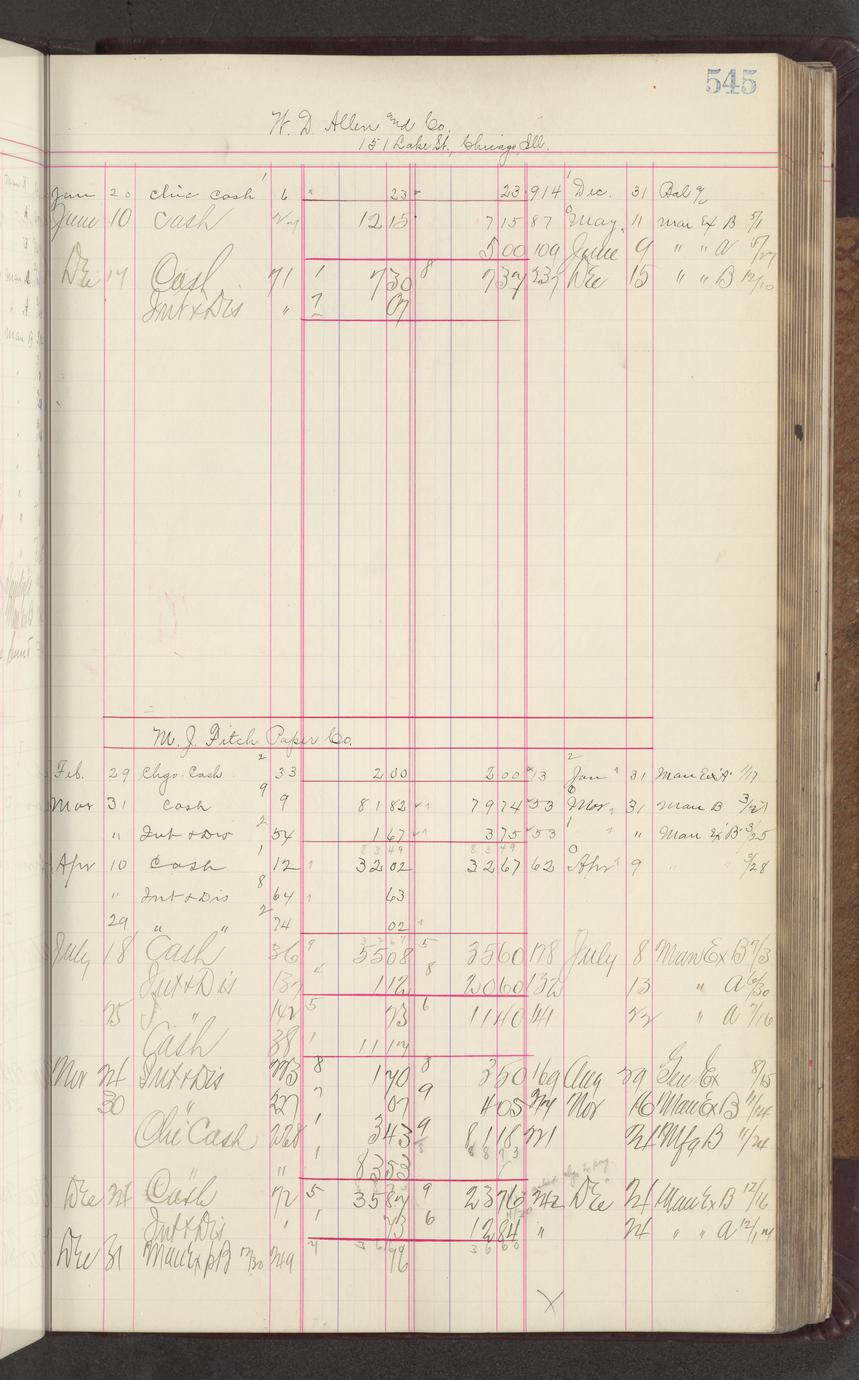 545
W. D. Allen and Co.
151 Lake St., Chicago, Ill.
Jan 20 Chic Cash 6 23 23 914 Dec. 31 Bal
June 10 Cash 12 15 7 15 87 May 11 Man Ex B 5/1
5 00 109 June 9 " " A 5/27
Dec 17 Cash 71 7 30 7 37 237 Dec 15 " " B 12/10
Int & Dis " 07
M. J. Fitch Paper Co.
Feb. 29 Chgo. Cash 33 2 00 2 00 13 Jan 31 Man Ex "A" 1/17
Mar 31 Cash 9 81 82 79 74 53 Mar, 31 Man B 3/27
" Int & Dis 54 1 67 3 75 53 " " Man Ex B 3/25
83 49 83 49
Apr 10 Cash 12 32 02 32 67 62 Apr 9 " " 3/28
" Int & Dis 64 63
29 " " 74 02
July 18 Cash 36 55 08 35 60 128 July 8 Man Ex B 7/3
Int & Dis 137 1 12 20 60 132 13 " A 6/30
25 " 142 23 11 40 141 22 " A 7/16
Cash 38 11 17
Nov 24 Int & Dis 223 1 70 3 50 169 Aug 29 Gen Ex 8/25
30 " 227 07 4 05 214 Nov 16 Man Ex B 11/14
Chi Cash 228 3 43 81 18 221 24 Mfg B 11/24
" " 83 53 88 73
Dec 24 Cash 72 35 87 23 76 242 Dec 24 Man Ex B 12/16
Int & Dis " 73 12 84 " 24 " " A 12/17
36 60 36 60
Dec 31 Man Ex p B 12/30 249 96
X